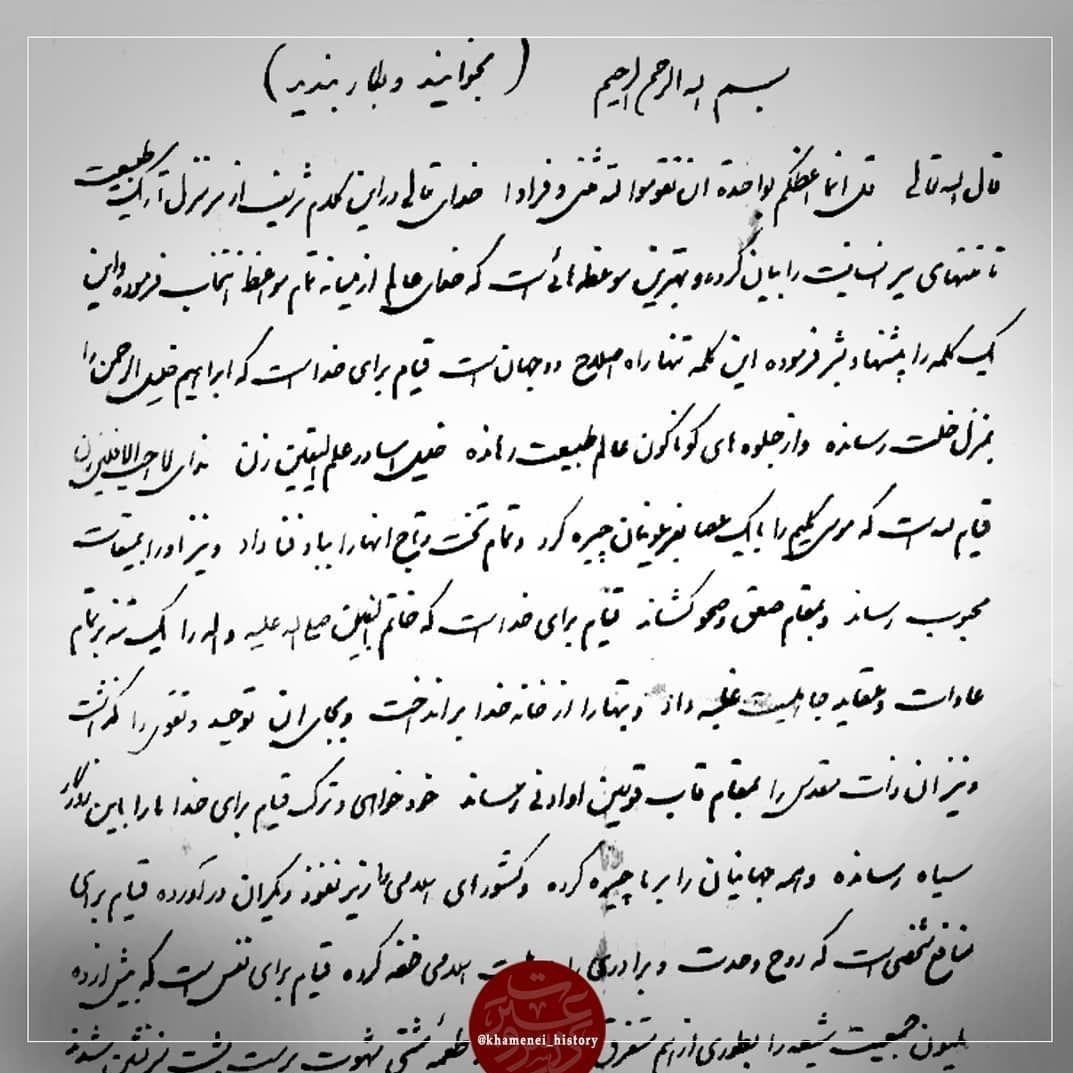 بسم الله الرحمن الرحیم (بخوانید و بکار ببندید)
قال الله تعالی قل انما اعظکم بواحدة ان تقوموا لله مثنی و فرادا خدای تعالی در این کلام شریف از سرمنزل تاریک طبیعت
تا منتهای سیر انسانیت را بیان کرده و بهترین موعظه هائی است که خدای عالم از میانه تمام مواعظ انتخاب فرموده و این
یک کلمه را پیشنهاد بشر فرموده این کلمه تنها راه اصلاح دو جهان است قیام برای خدا است که ابراهیم خلیل الرحمن را
بمنزل خلت رسانده و از جلوه های گوناگون عالم طبیعت رهانده خلیل آسا در علم الیقین زن ندای لا احب الافلین زن
قیام لله است که موسی کلیم را با یک عصا بفرعونیان چیره کرد و تمام تخت و تاج آنها را بباد فنا داد و نیز او را بمیقات
محبوب رساند و بمقام صعق و صحو کشاند قیام برای خدا است که خاتم النبیین صلی الله علیه و اله را یک تنه بر تمام
عادات و عقاید جاهلیت غلبه داد و بتها را از خانه خدا برانداخت و بجای آن توحید و تقوی را گذاشت
و نیز آن ذات مقدس را بمقام قاب قوسین او ادنی رساند خودخواهی و ترک قیام برای خدا ما را باین روزگار
سیاه رسانده و همه جهانیان را بر ما چیره کرده و کشورهای اسلامی را زیر نفوذ دیگران درآورده قیام برای
منافع شخصی است که روح وحدت و برادری را در ملت اسلامی خفه کرده قیام برای نفس است که بیش از ده
ملیون جمعیت شیعه را بطوری از هم متفرق طعمه مشتی شهوت پرست پشت میزنشین شدند
@khamenei_history